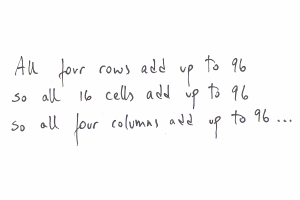 All four rows add up to 96
so all 16 cells add up to 96
so all four columns add up to 96 ...